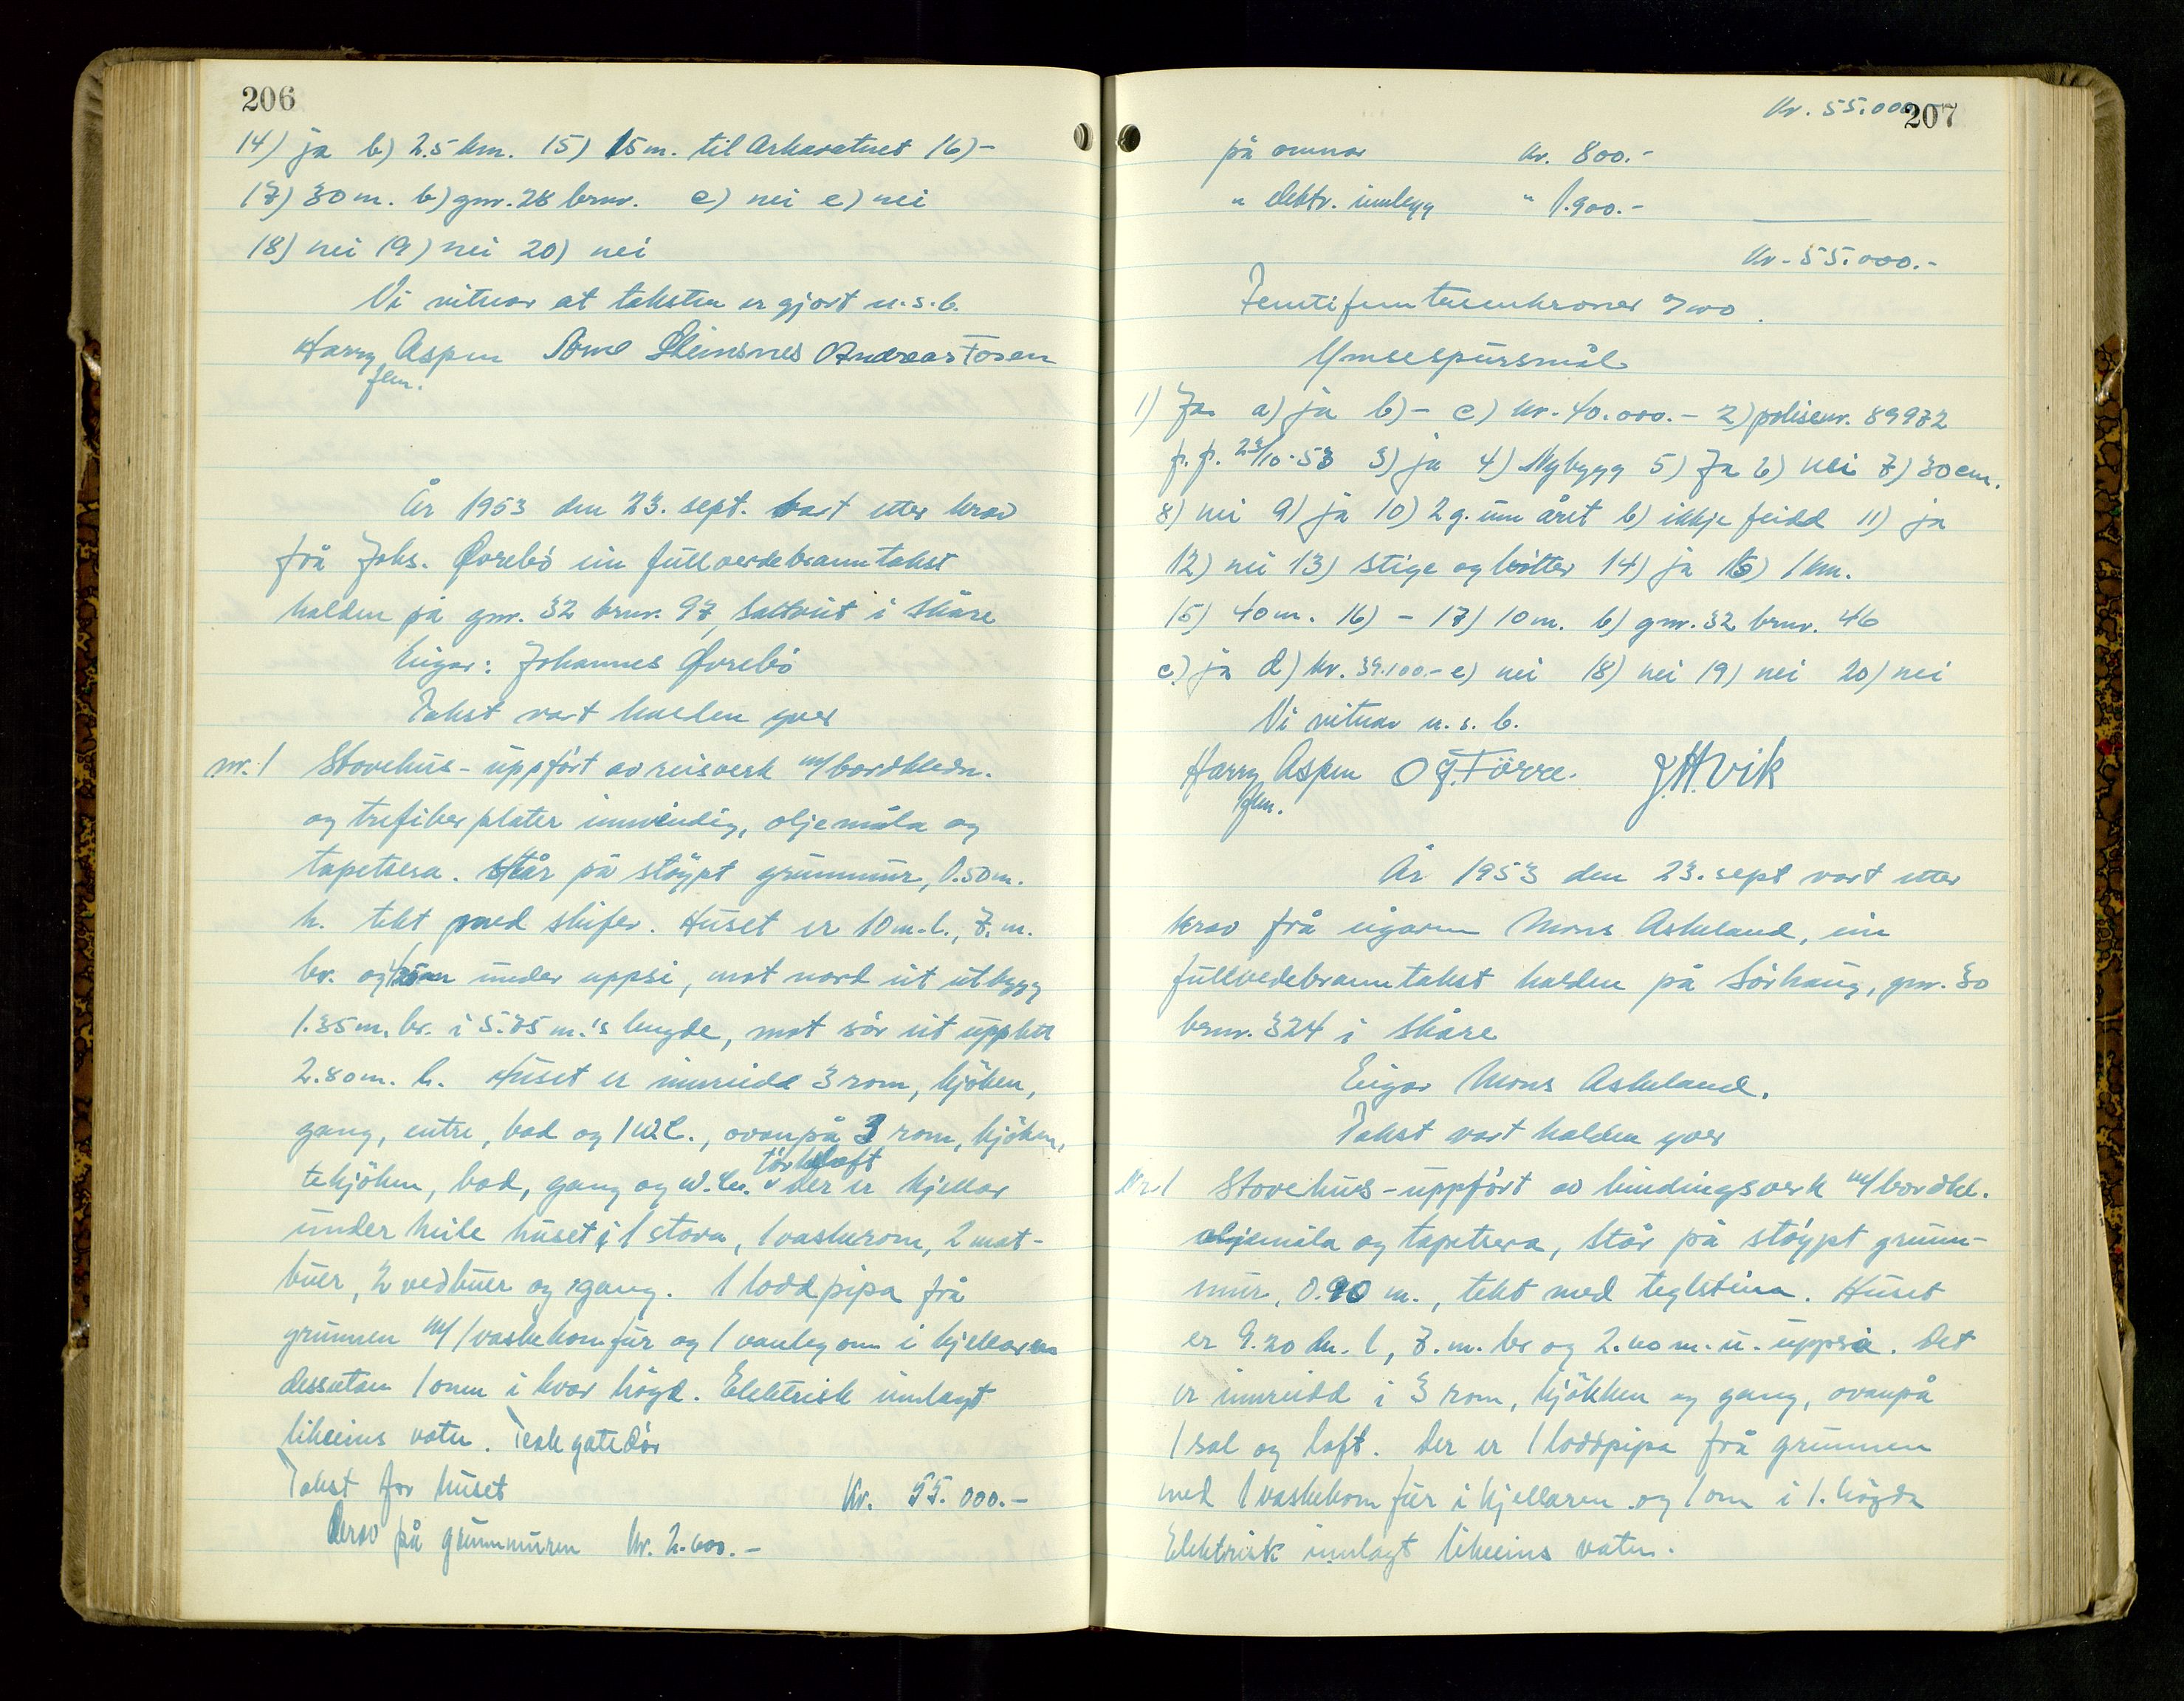 206
14) ja b) 2.5 km. 15) 15 m. til Arkavatnet 16) -
17) 30 m. b) gnr. 28 bnr. c) nei e) nei
18) nei 19) nei 20) nei
Vi vitnar at taksten er gjort u. s. b.
Harry Aspen Steinsnes Andreas Fosen
flm.
År 1953 den 23. sept. vart etter krav
frå Johs. Øvrebö ein fullverdebranntakst
halden på gnr. 32 bnr. 97, Saltveit i Skåre
Eigar: Johannes Øvrebö
Takst vart halden yver
nr. 1 Stovehus - uppfört av reisverk m/bordkledn.
og trefiberplater innvendig, oljemåla og
tapetsera. Står på støypt grunnmur, 0.50 m.
h. tekt med skifer. Huset er 10 m. l., 7. m.
br. og under uppsi, mot nord eit utbygg
1.35 m. br. i 5.75 m.'s lengde, mot sör eit upplett
2.80 m. l. Huset er innreidd 3 rom, kjöken,
gang, entre, bad og 1 W.C., ovanpå 3 rom, kjöken,
törkloft
tekjöken, bad, gang og W.C. v der er kjellar
under heile huset i 1 stova, 1 vaskerom, 2 mat-
buer, 2 vedbuer og gang. 1 loddpipa frå
grunnen m/1 vaskekomfur og 1 vanleg omn i kjellaren
dessutan 1 omn i kvar högd. Elektrisk innlagt
likeeins vatn. Teak gatedör
Takst for huset Kr. 55.000.-
Derav på grunnmuren Kr. 2.600.-
207
Kr. 55.000
på omnar kr. 800.-
" elektr. innlegg " 1.900.-
Kr. 55.000.-
Femtifemtusenkroner 0/100
Ymsespursmål
1) Ja a) ja b) - c) kr. 40.000.- 2) polisenr. 89972
f. f. 23/10-53 3) ja 4) Nybygg 5) Ja 6) nei 7) 30 cm.
8) nei 9) ja 10) 2 g. um året b) ikkje feidd 11) ja
12) nei 13) stige og bötter 14) ja b) 1 km.
15) 40 m. 16) - 17) 10 m. b) gnr. 32 bnr. 46
c) ja d) kr. 39.100.- e) nei 18) nei 19) nei 20) nei
Vi vitnar u. s. b.
Harry Aspen O G. Förre. J. H. Vik
flm.
År 1953 den 23. sept vart etter
krav frå eigaren Mons Askeland, ein
fullvedebranntakst halden på Sörhaug, gnr. 30
bnr. 324 i Skåre
Eigar Mons Askeland.
Takst vart halden yver
Nr. 1 Stovehus - uppfört av bindingsverk m/bordkl.
oljemåla og tapetsera, står på støypt grunn-
mur, 0.90 m., tekt med teglsteina. Huset
er 9.20 m. l, 7. m. br og 2.40 m. u. uppsia. Det
er innreidd i 3 rom, kjökken og gang, ovanpå
1 sal og loft. Der er 1 loddpipa frå grunnen
med 1 vaskekomfur i kjellaren og 1 omn i 1. högda
Elektrisk innlagt likeeins vatn.